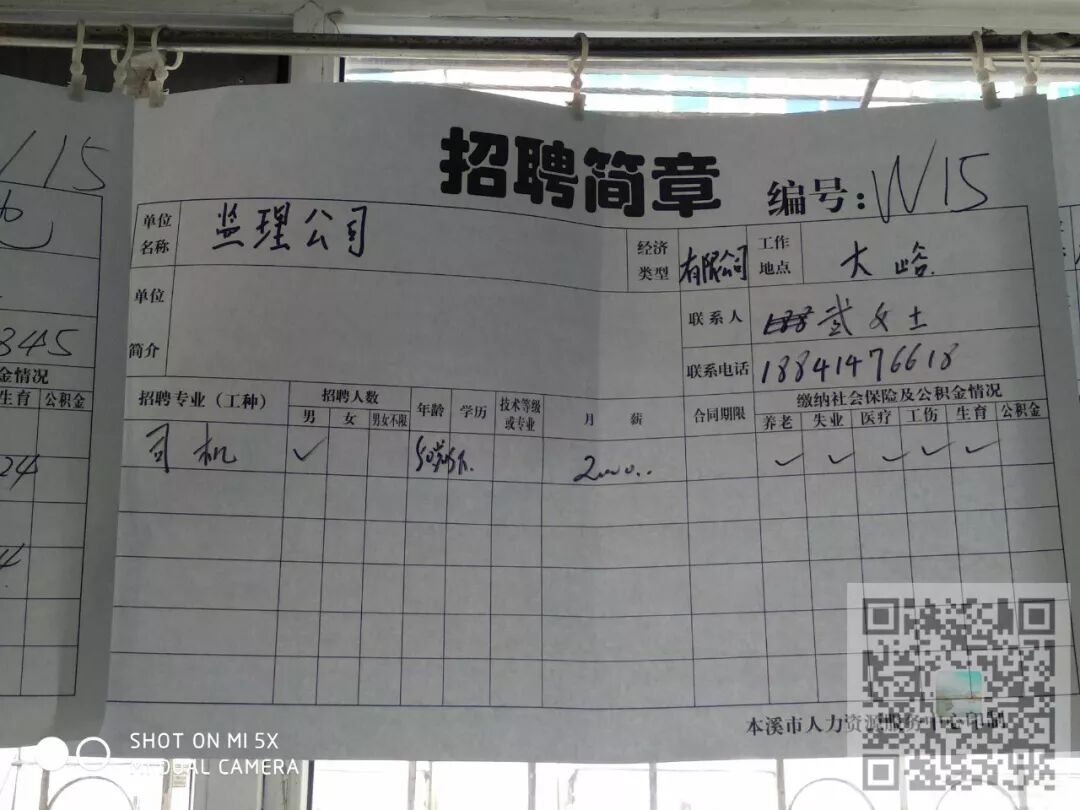 招聘简章
编号: W15
单位名称 监理公司 经济类型 有限公司 工作地点 大峪
单位简介
联系人 武女士
联系电话 18841476618
招聘专业（工种） 招聘人数 年龄 学历 技术等级或专业 月 薪 合同期限 缴纳社会保险及公积金情况
男 女 男女不限 养老 失业 医疗 工伤 生育 公积金
司机 ✓ 50岁以下. 2000.. ✓ ✓ ✓ ✓ ✓
本溪市人力资源服务中心印制
115
845
金情况
生育 公积金
24
SHOT ON MI 5X
MI DUAL CAMERA